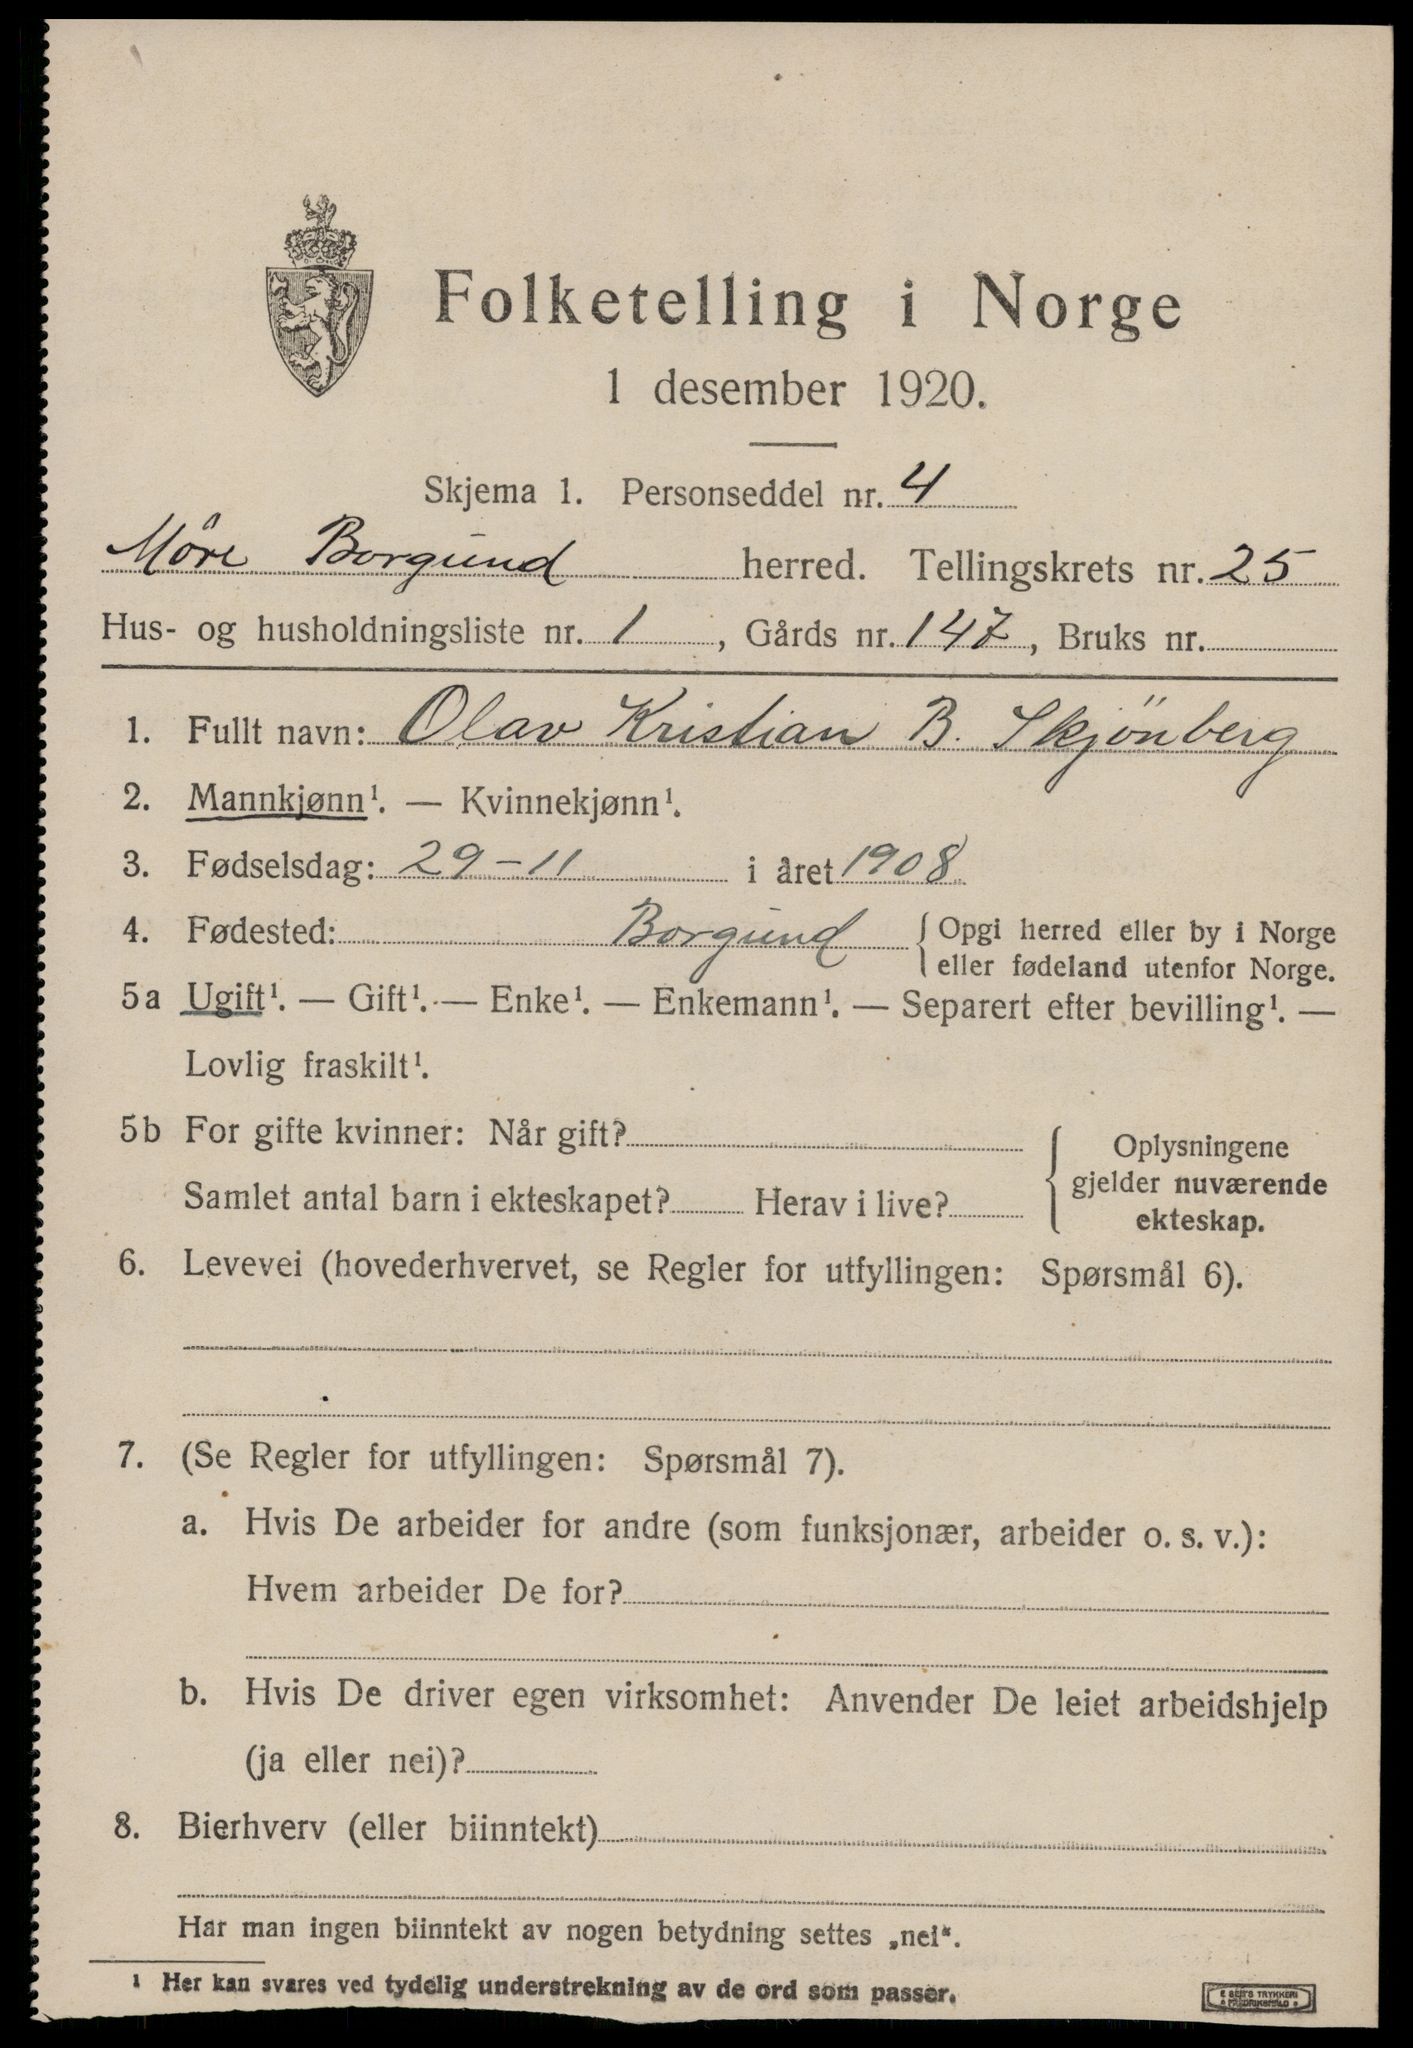 Folketelling i Norge
1 desember 1920.
Skjema 1. Personseddel nr. 4
Möre Borgund herred. Tellingskrets nr. 25
Hus- og husholdningsliste nr. 1, Gårds nr. 147, Bruks nr.
1. Fullt navn: Olav Kristian B. Skjönberg
2. Mannkjønn¹. — Kvinnekjønn¹.
3. Fødselsdag: 29-11 i året 1908
4. Fødested: Borgund { Opgi herred eller by i Norge
eller fødeland utenfor Norge.
5a Ugift¹. — Gift¹. — Enke¹. — Enkemann¹. — Separert efter bevilling¹. —
Lovlig fraskilt¹.
5b For gifte kvinner: Når gift?
Samlet antal barn i ekteskapet? Herav i live?
{ Oplysningene
gjelder nuværende
ekteskap.
6. Levevei (hovederhvervet, se Regler for utfyllingen: Spørsmål 6).
7. (Se Regler for utfyllingen: Spørsmål 7).
a. Hvis De arbeider for andre (som funksjonær, arbeider o. s. v.):
Hvem arbeider De for?
b. Hvis De driver egen virksomhet: Anvender De leiet arbeidshjelp
(ja eller nei)?
8. Bierhverv (eller biinntekt)
Har man ingen biinntekt av nogen betydning settes „nei".
¹ Her kan svares ved tydelig understrekning av de ord som passer.
E SEM'S TRYKKERI
FREDRIKSHALD